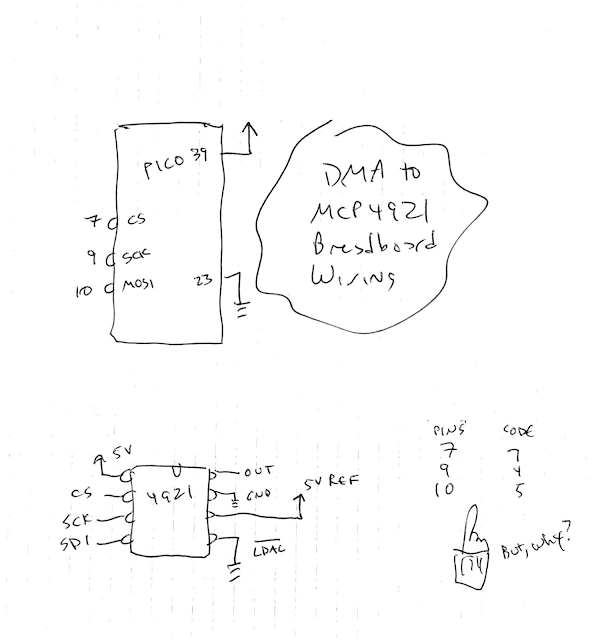 PICO 39
7 CS
9 SCK
10 MOSI 23
DMA to
MCP4921
Breadboard
Wiring
5V
OUT
CS 4921 GND
5V REF
SCK
SDI LDAC
PINS CODE
7 7
9 4
10 5
But, why?